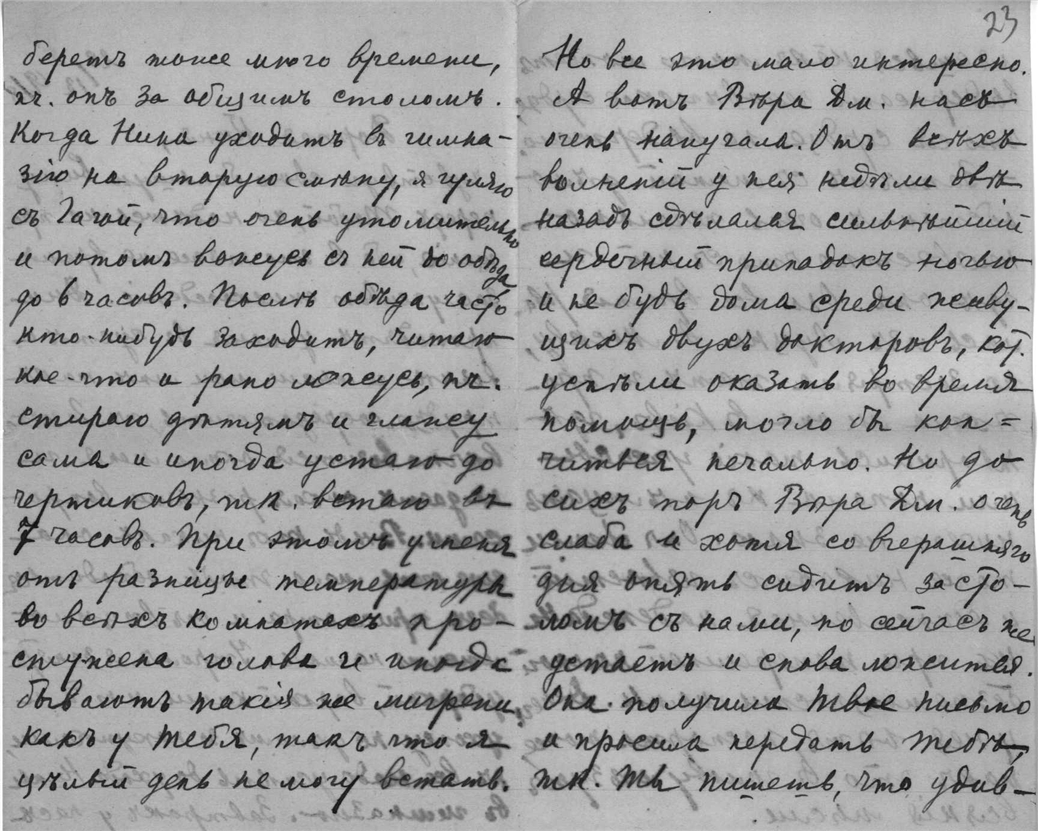 беретъ тоже много времени,
т.ч. онъ за общимъ столомъ.
Когда Нина уходитъ въ гимна-
зію на вторую смѣну, я гуляю
съ Гагой, что очень утомительно
и потомъ вожусь съ ней до обѣда
до 6 часовъ. Послѣ обѣда часто
кто-нибудь заходитъ, читаю
кое-что и рано ложусь, т.ч.
стираю дѣтямъ и глажу
сама и иногда устаю до
чертиковъ, т.к. встаю въ
7 часовъ. При этомъ у меня
отъ разницы температуры
во всѣхъ комнатахъ про-
стужена голова и иногда
бываютъ такія же мигрени,
какъ у тебя, такъ что я
цѣлый день не могу встать.
23
Но все это мало интересно.
А вотъ Вѣра Дм. насъ
очень напугала. Отъ всѣхъ
волненій у нея недѣли двѣ
назадъ сдѣлался сильнѣйшій
сердечный припадокъ ночью
и не будь дома среди живу-
щихъ двухъ докторовъ, кот.
успѣли оказать во время
помощь, могло бы кон=
читься печально. Но до
сихъ поръ Вѣра Дм. очень
слаба и хотя со вчерашняго
дня опять сидитъ за сто-
ломъ съ нами, но сейчасъ же
устаетъ и снова ложится.
Она получила твое письмо
и просила передать тебѣ,
т.к. ты пишешь, что удив-